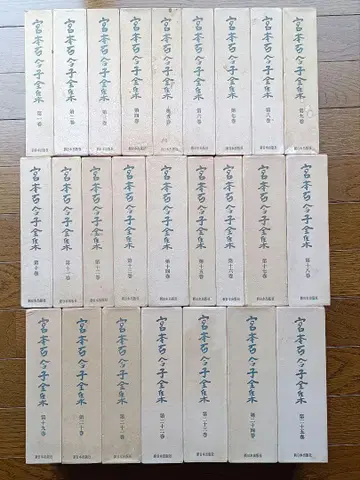 宮本百合子全集 第一巻 新日本出版社
宮本百合子全集 第二巻 新日本出版社
宮本百合子全集 第三巻 新日本出版社
宮本百合子全集 第四巻 新日本出版社
宮本百合子全集 第五巻 新日本出版社
宮本百合子全集 第六巻 新日本出版社
宮本百合子全集 第七巻 新日本出版社
宮本百合子全集 第八巻 新日本出版社
宮本百合子全集 第九巻 新日本出版社
宮本百合子全集 第十巻 新日本出版社
宮本百合子全集 第十一巻 新日本出版社
宮本百合子全集 第十二巻 新日本出版社
宮本百合子全集 第十三巻 新日本出版社
宮本百合子全集 第十四巻 新日本出版社
宮本百合子全集 第十五巻 新日本出版社
宮本百合子全集 第十六巻 新日本出版社
宮本百合子全集 第十七巻 新日本出版社
宮本百合子全集 第十八巻 新日本出版社
宮本百合子全集 第十九巻 新日本出版社
宮本百合子全集 第二十巻 新日本出版社
宮本百合子全集 第二十一巻 新日本出版社
宮本百合子全集 第二十二巻 新日本出版社
宮本百合子全集 第二十三巻 新日本出版社
宮本百合子全集 第二十四巻 新日本出版社
宮本百合子全集 第二十五巻 新日本出版社